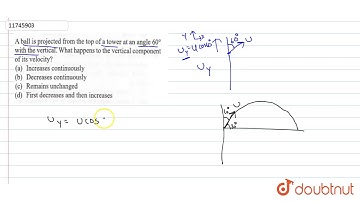 11745903
A ball is projected from the top of a tower at an angle 60°
with the vertical. What happens to the vertical component
of its velocity?
(a) Increases continuously
(b) Decreases continuously
(c) Remains unchanged
(d) First decreases and then increases
60° U
U_y
U_y = U cos
U
60°
doubtnut